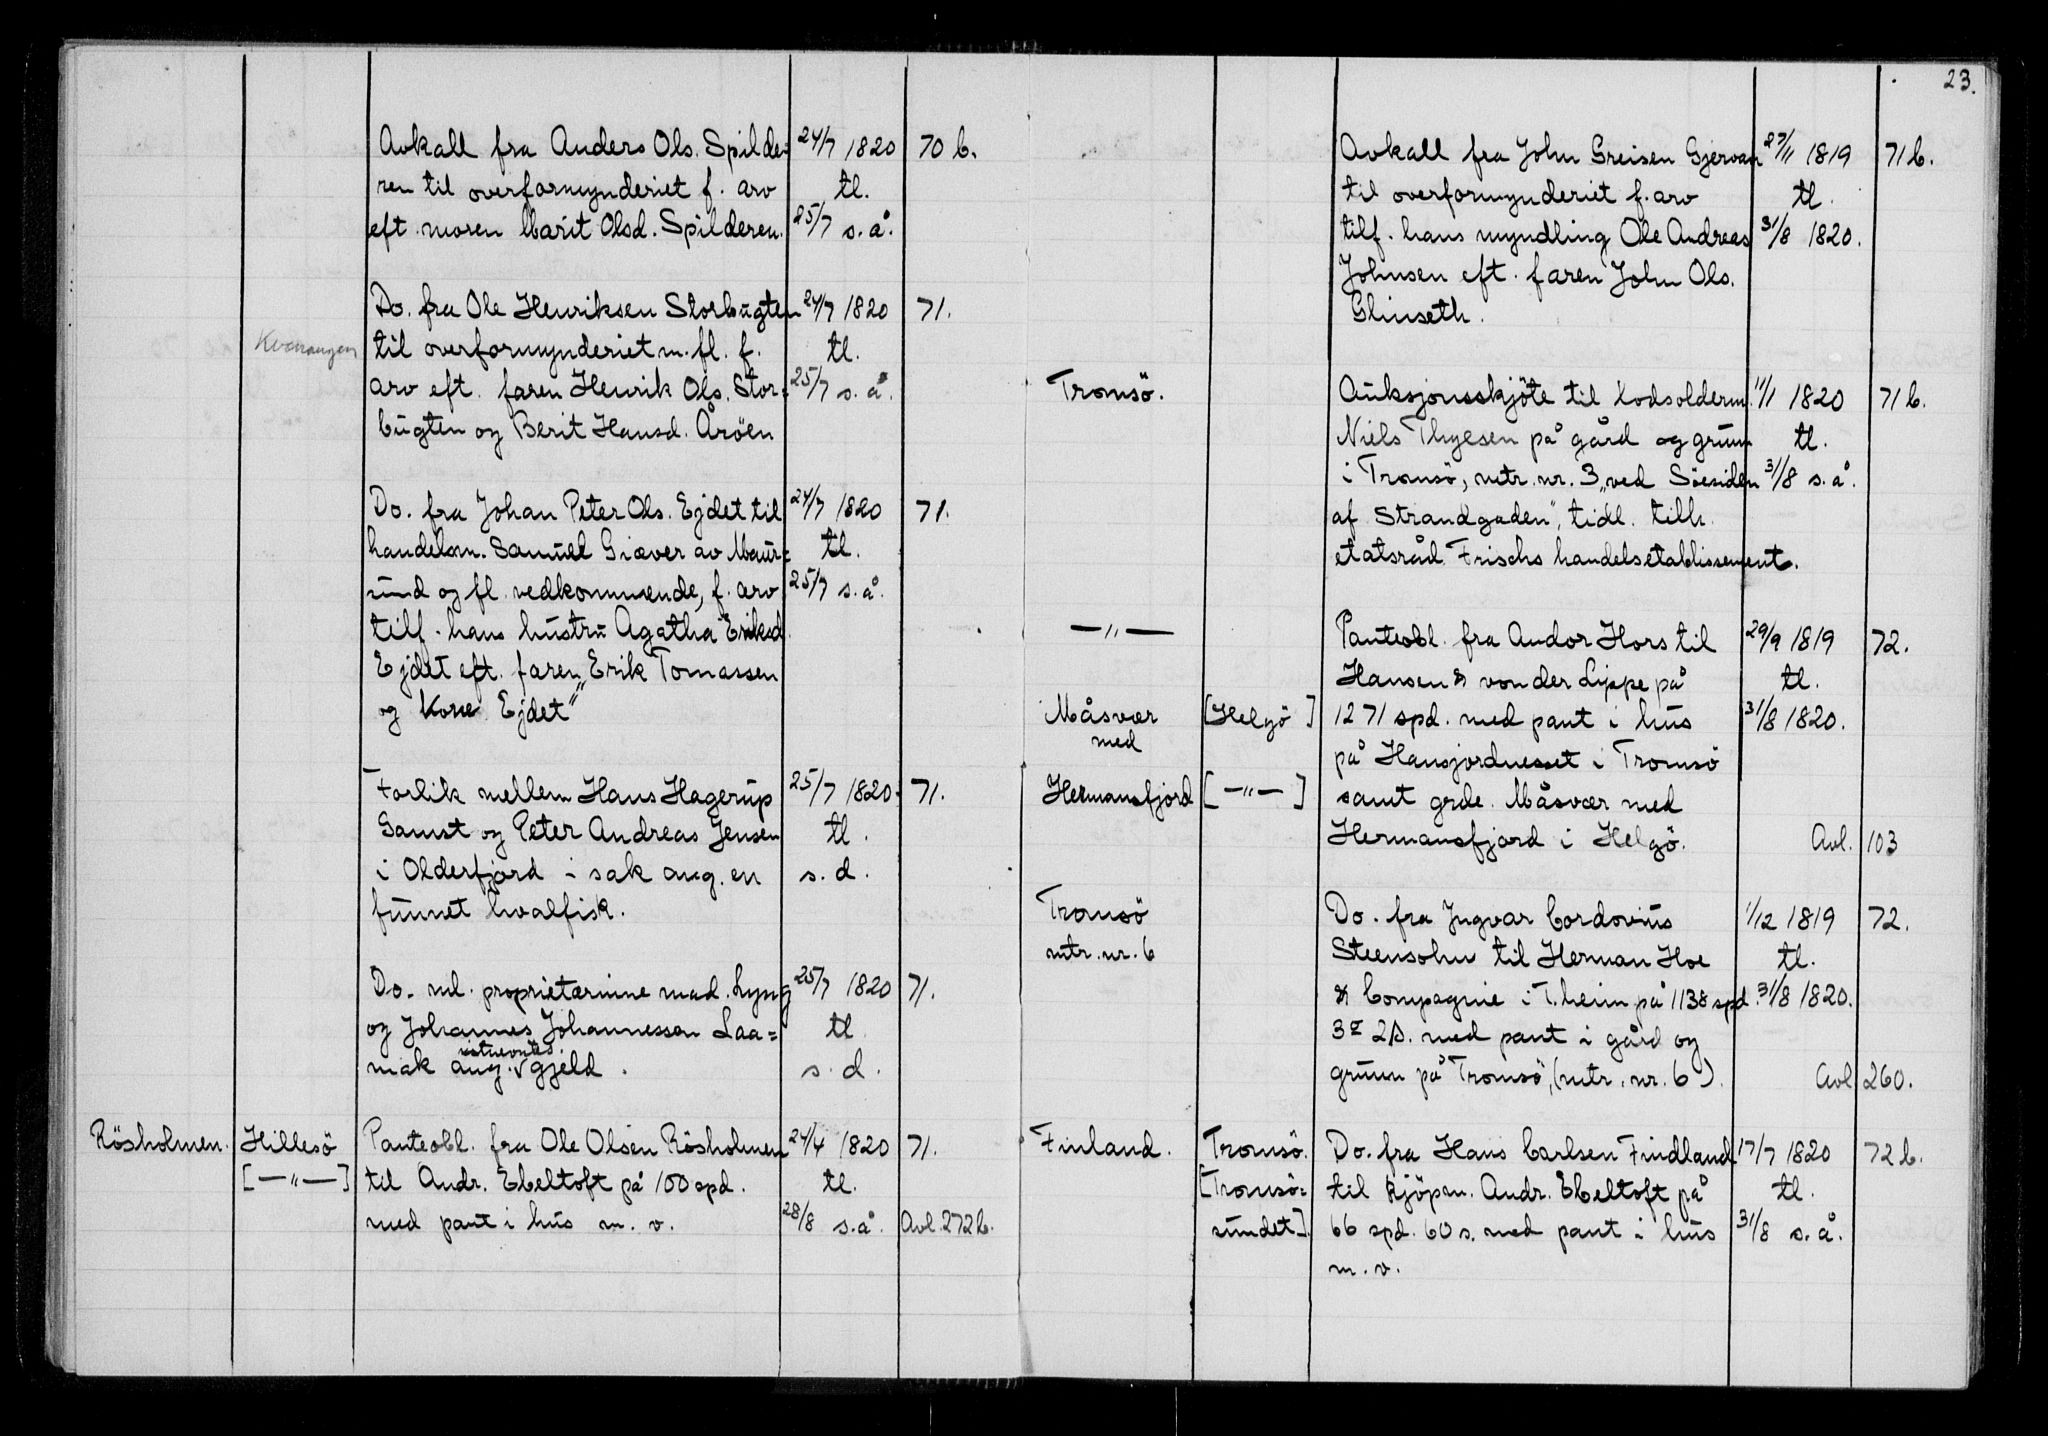 23.
Avkall fra Anders Ols. Spilde= 24/7 1820 70 b.
ren til overformynderiet f. arv tl.
eft. moren Marit Olsd. Spilderen. 25/7 s. å.
Do. fra Ole Henriksen Storbugten 24/7 1820 71.
Kvænangen til overformynderiet m. fl. f. tl.
arv eft. faren Henrik Ols. Stor= 25/7 s. å.
bugten og Berit Hansd. Åröen
Do. fra Johan Peter Ols. Ejdet til 24/7 1820 71.
handelsm. Samuel Giæver av Maur= tl.
sund og fl. vedkommende, f. arv 25/7 s. å.
tilf. hans hustru Agatha Eriksd.
Ejdet eft. faren „Erik Tomassen
og Kone Ejdet"
Forlik mellem Hans Hagerup 25/7 1820. 71.
Gamst og Peter Andreas Jensen tl.
i Olderfjord i sak ang. en s. d.
funnet hvalfisk.
Do. ml. proprietærinne mad. Lyng 25/7 1820 71.
og Johannes Johannessen Laa= tl
mak ang. √ gjeld. s. d.
Rösholmen. Hillesö Panteobl. fra Ole Olsen Rösholmen 24/4 1820 71.
[—"—] til Andr. Ebeltoft på 100 spd. tl.
med pant i hus m. v. 28/8 s. å. Avl. 272 b.
Avkall fra John Greisen Gjervan 27/11 1819 71 b.
til overformynderiet f. arv tl.
tilf. hans myndling Ole Andreas 31/8 1820.
Johnsen eft. faren John Ols.
Glinseth.
Tromsö. Auksjonsskjöte til Kodsolderm. 11/1 1820 71 b.
Niels Thyesen på gård og grunn tl.
i Tromsö, mtr. nr. 3 „ved Söesiden 31/8 s. å.
af Strandgaden", tidl. tilh.
etatsråd Frischs handelsetablissement.
—"— Panteobl. fra Andor Hors til 29/9 1819 72.
Hansen & von der Lippe på tl.
Måsvær [Helgö] 1271 spd. med pant i hus 31/8 1820.
med på Hansjordnesset i Tromsö
Hermansfjord [—"—] samt grde. Måsvær med
Hermansfjord i Helgö. Avl. 103
Tromsö Do. fra Ingvar Cordovius 1/12 1819 72.
mtr. nr. 6 Steensohn til Herman Hoe tl.
& Compagnie i T.heim på 1138 spd. 31/8 1820.
3 2 s. med pant i gård og
grunn på Tromsö, (mtr. nr. 6). Avl 260.
Finland. Tromsö. Do. fra Hans Carlsen Findland 17/7 1820 72 b.
[Tromsö= til kjöpm. Andr. Ebeltoft på tl.
sundet]. 66 spd. 60 s. med pant i hus 31/8 s. å.
m. v.